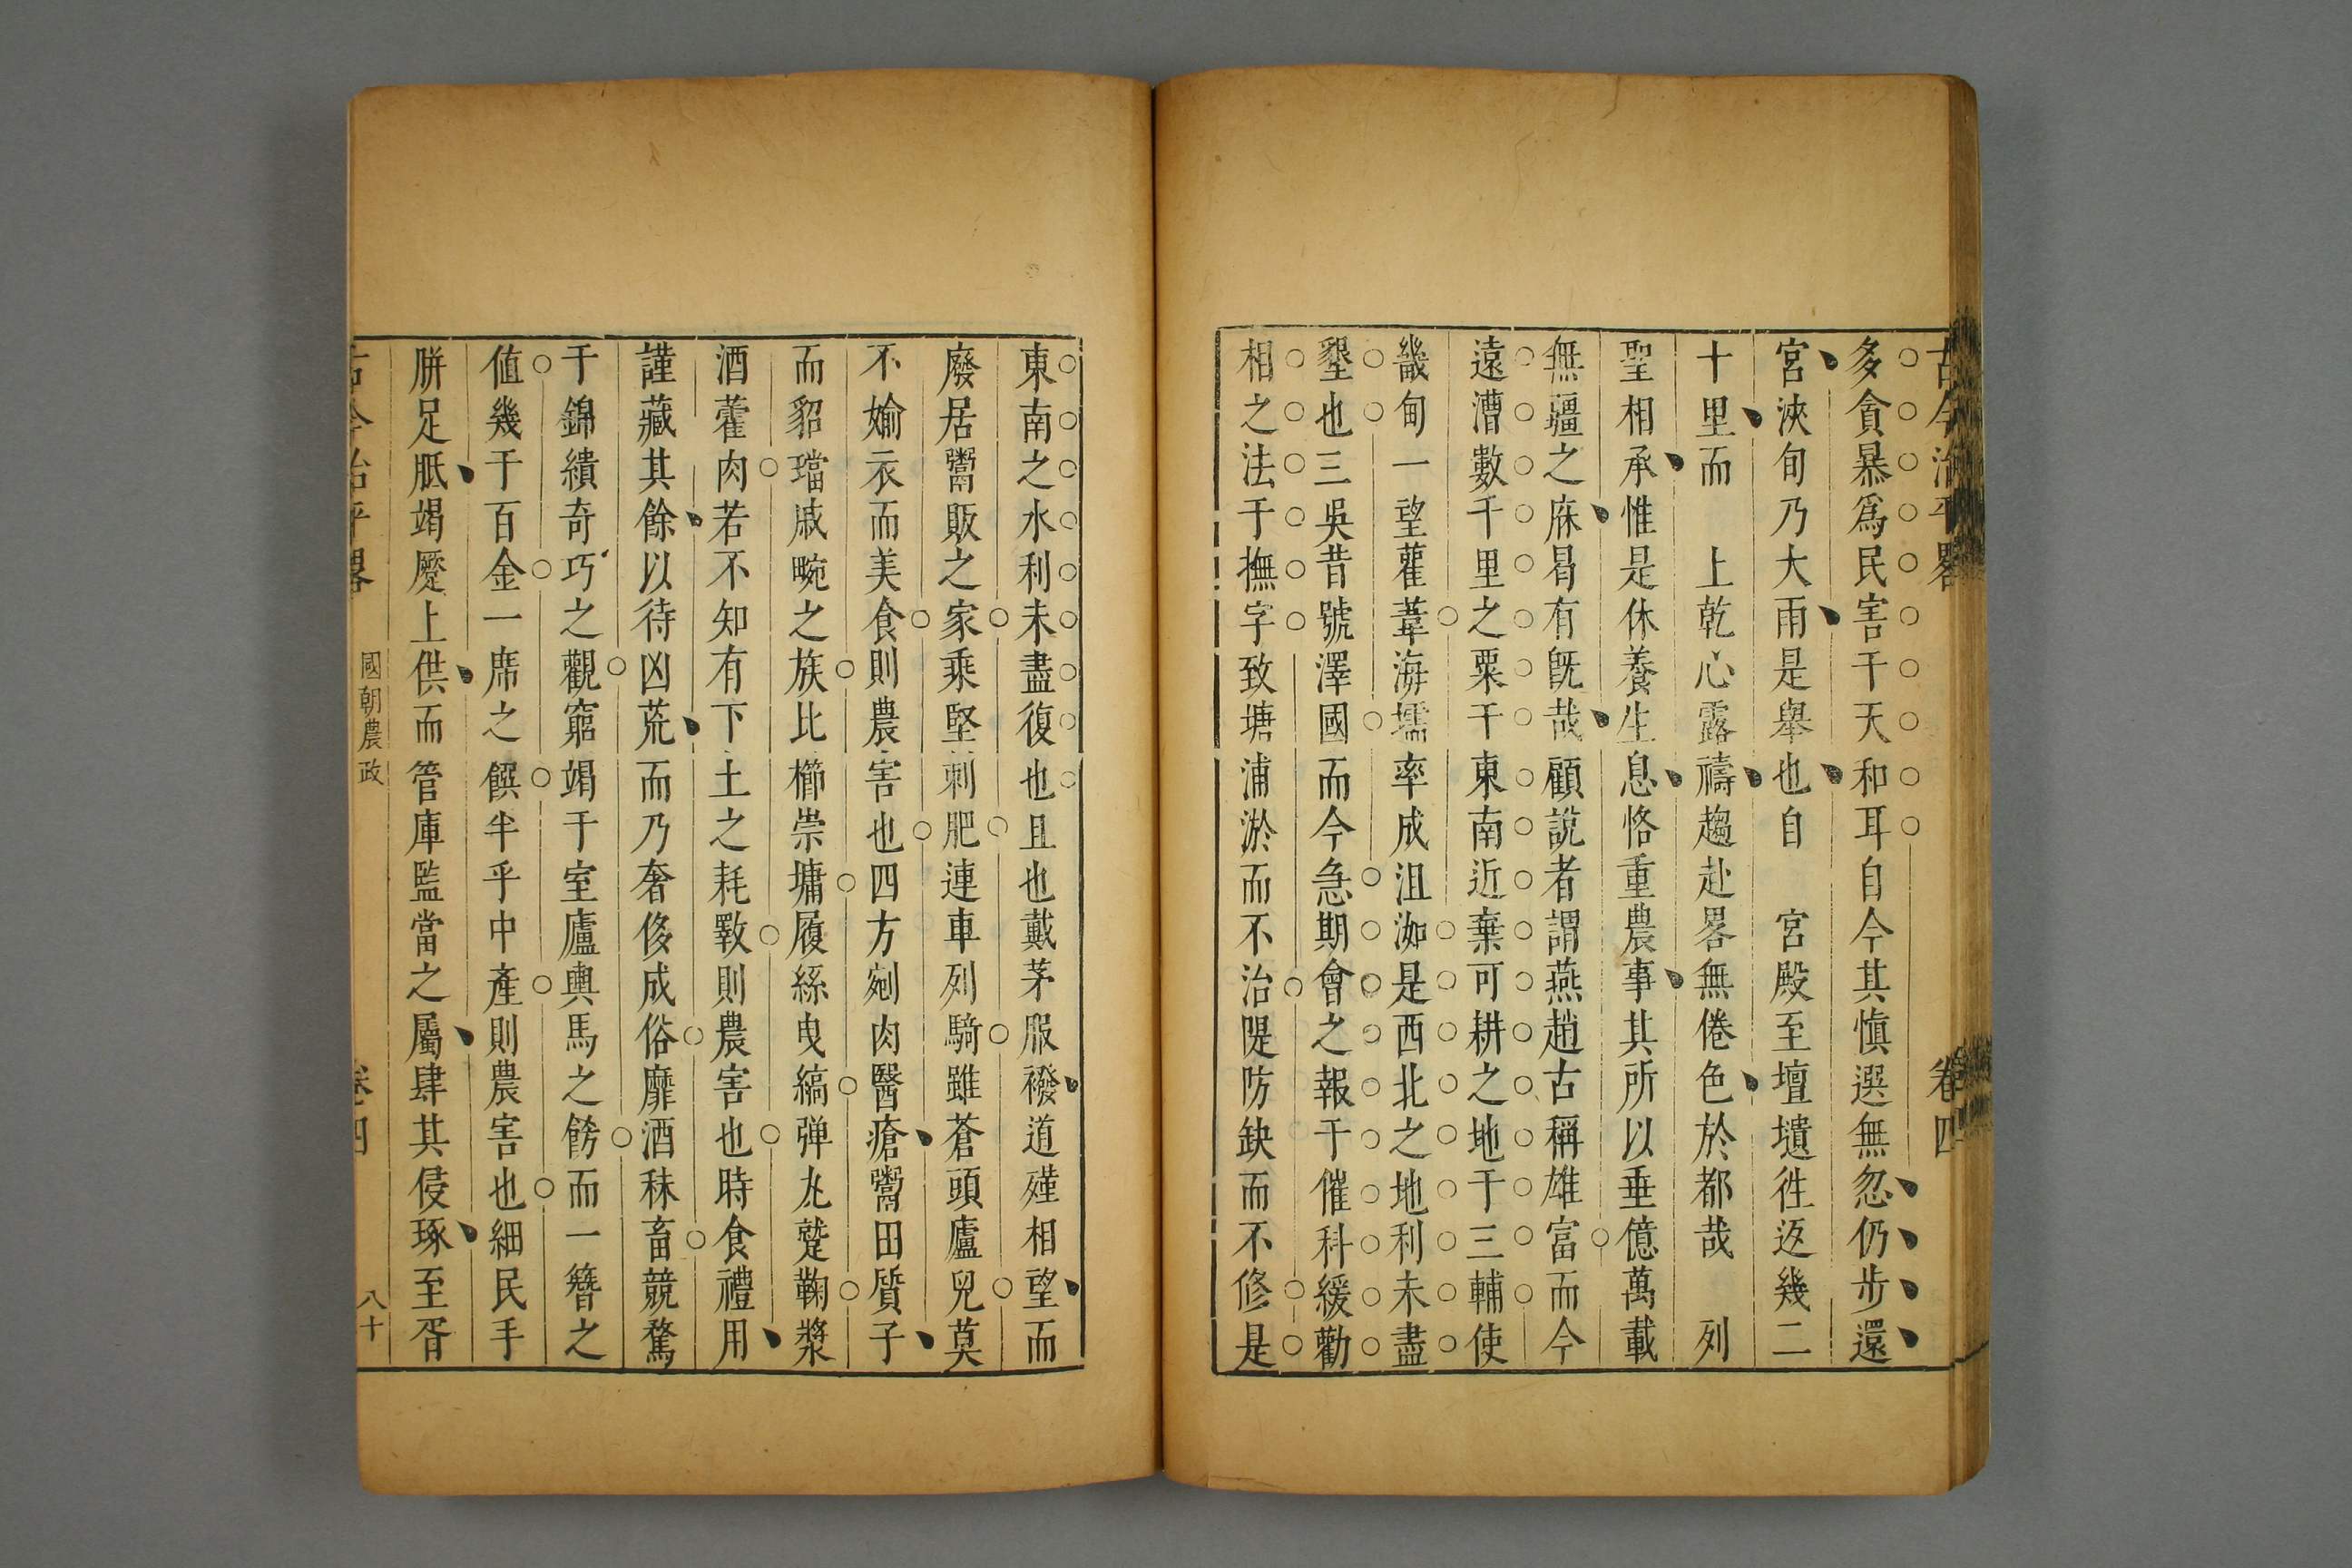 古今治平畧 卷四
多貪暴爲民害干天和耳自今其愼選無忽仍步還
宮浹旬乃大雨是舉也自　宮殿至壇壝徃返幾二
十里而　上乾心露禱趨赴畧無倦色於都哉　列
聖相承惟是休養生息恪重農事其所以垂億萬載
無疆之庥曷有旣哉顧說者謂燕趙古稱雄富而今
遠漕數千里之粟于東南近棄可耕之地于三輔使
畿甸一望雚葦海壖率成沮洳是西北之地利未盡
墾也三吳昔號澤國而今急期會之報于催科緩勸
相之法于撫字致塘浦淤而不治隄防缺而不修是
東南之水利未盡復也且也戴茅服襏道殣相望而
廢居鬻販之家乘堅刺肥連車列騎雖蒼頭廬兒莫
不婾衣而美食則農害也四方剜肉醫瘡鬻田質子
而貂璫戚畹之族比櫛崇墉履絲曳縞彈丸蹵鞠漿
酒藿肉若不知有下土之耗斁則農害也時食禮用
謹藏其餘以待凶荒而乃奢侈成俗靡酒秣畜競騖
于錦繢奇巧之觀窮竭于室廬輿馬之餝而一簪之
値幾千百金一席之饌半乎中產則農害也細民手
胼足胝竭蹷上供而管庫監當之屬肆其侵琢至胥
古今治平畧 國朝農政 卷四 八十